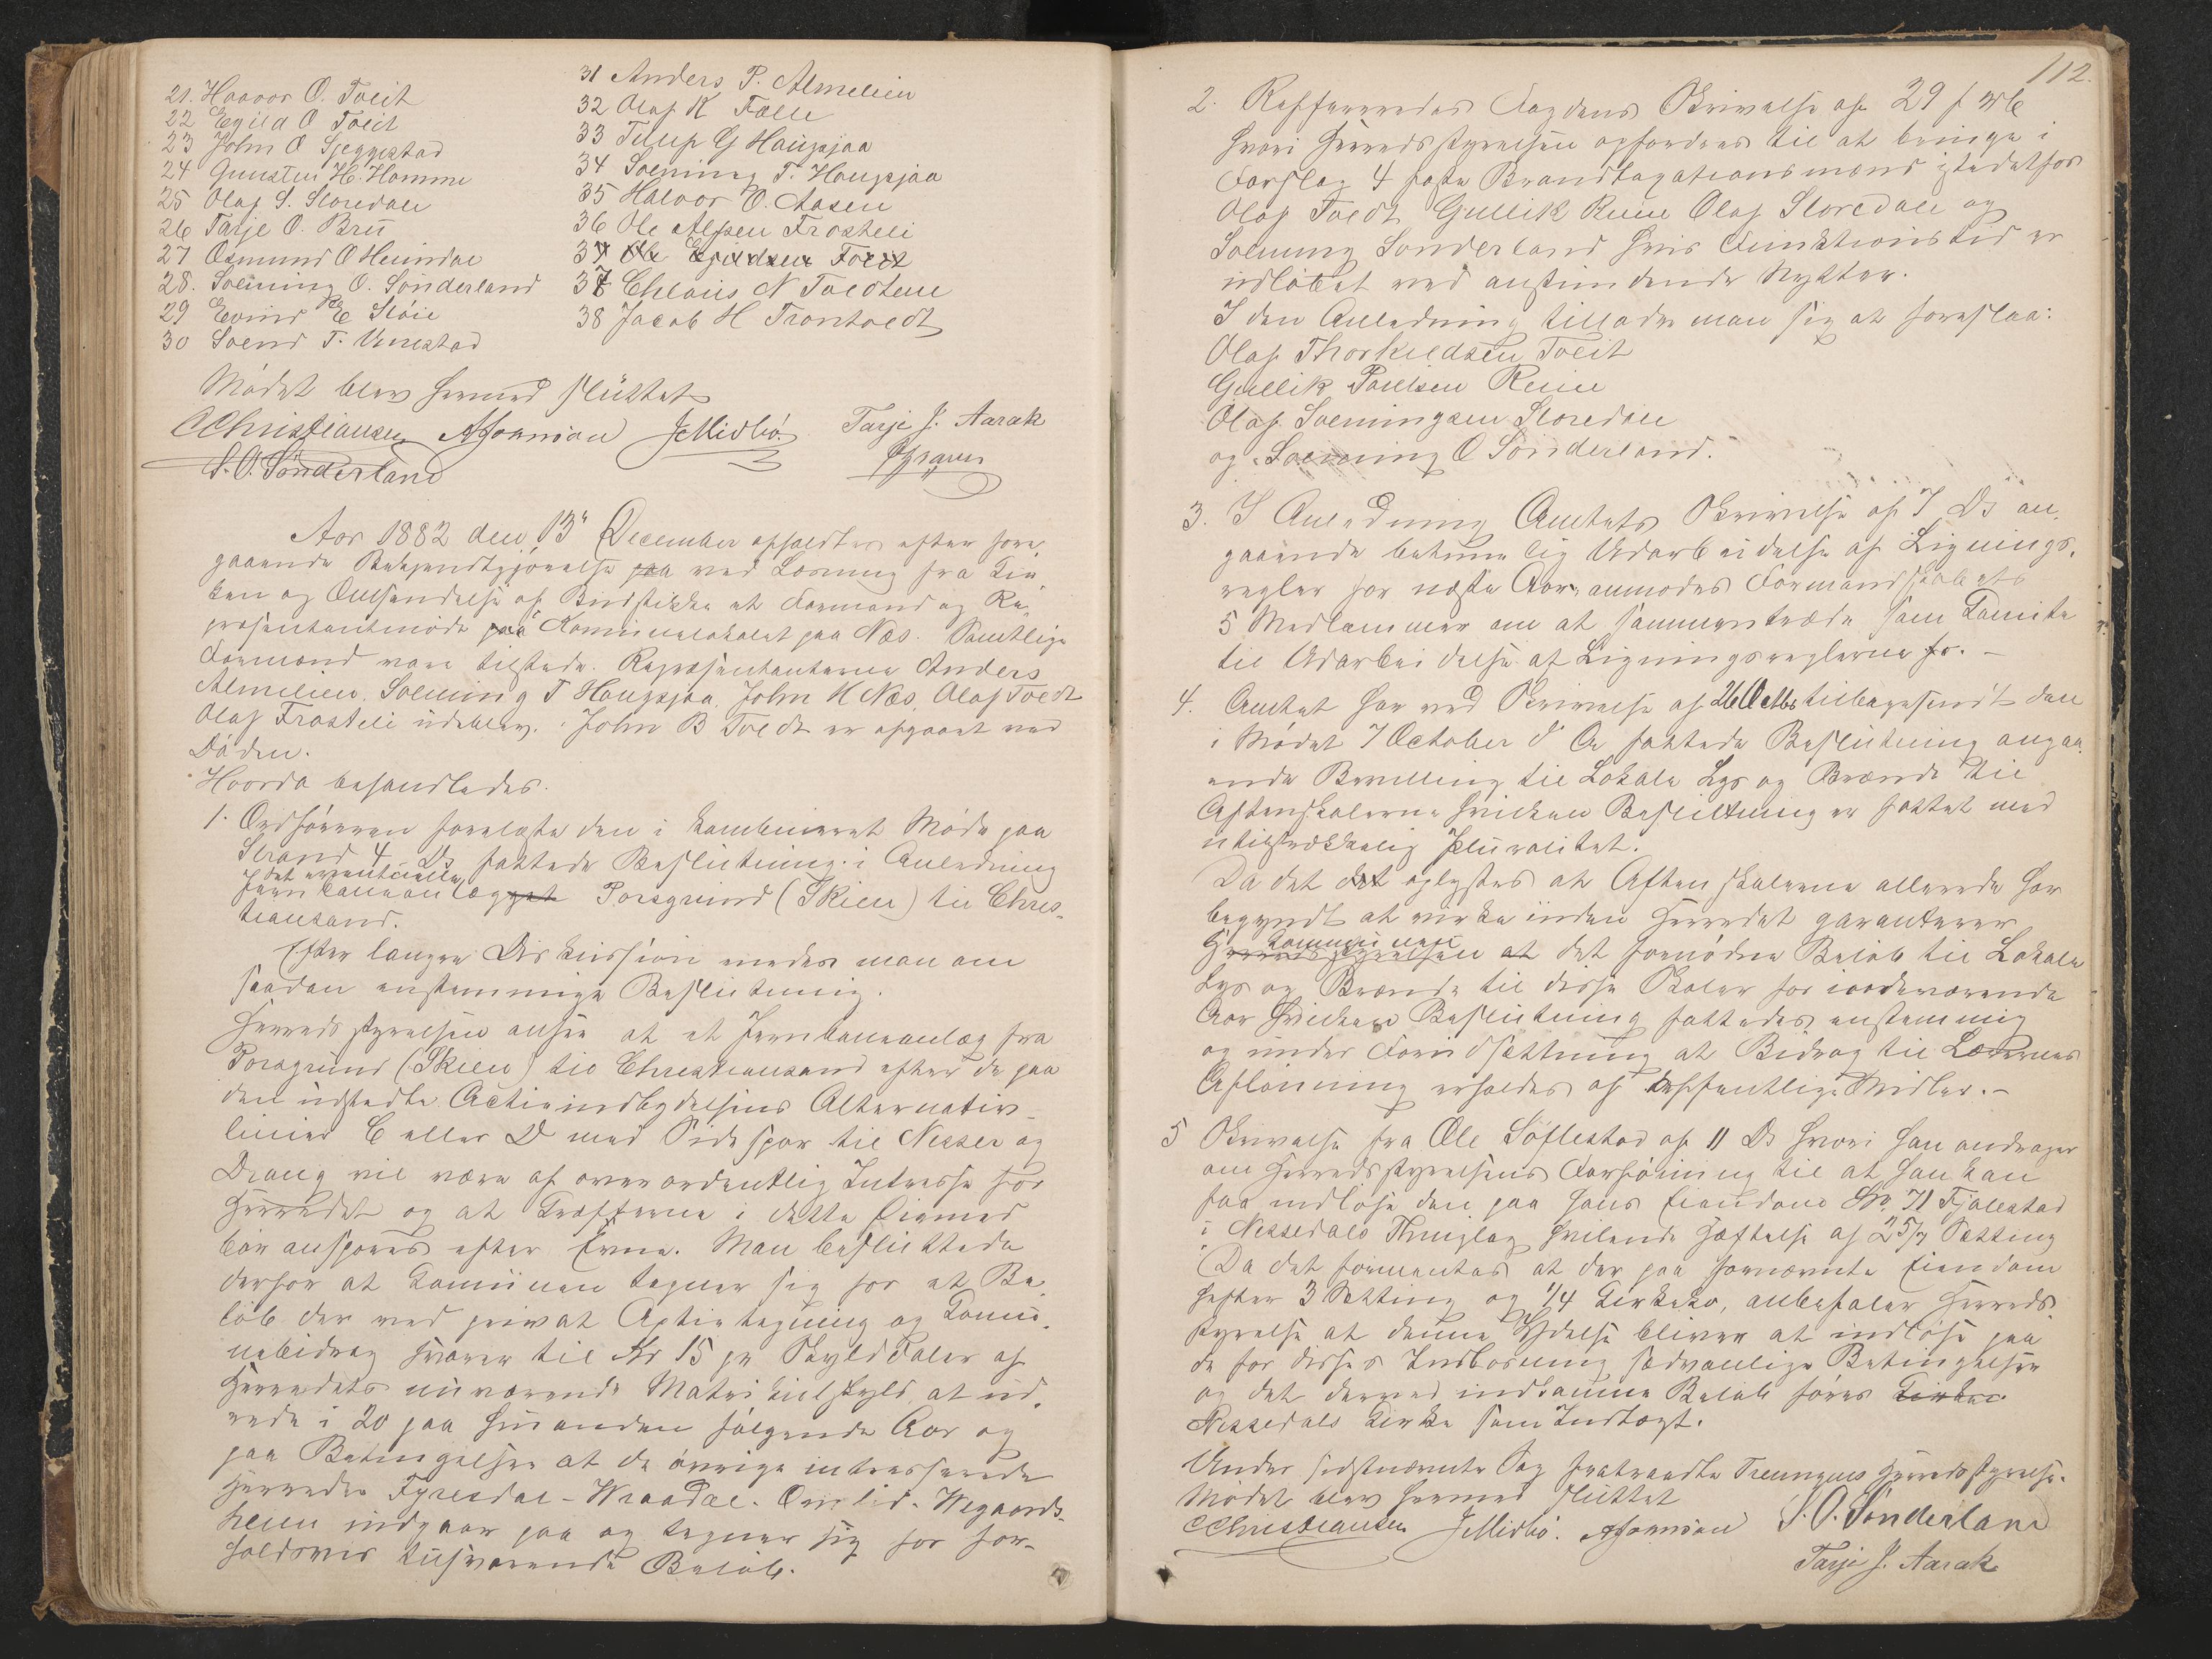 21. Haavor O. Tveit
22 Egild O Tveit
23 John O Speggestad
24 Gunstei H. Homme
25 Olaf S. Storedale
26 Tarje O. Bru
27 Osmund O Heimdal
28. Sveining O. Sönderland
29 Eivind E Stöie
30 Svend T. Venestad
31 Anders P. Almelien
32 Olaf K Fölle
33 Tellef G Haugsjaa
34 Sveining T. Haugsjaa
35 Halvor O. Aasen
36 Ole Alfsen Frosteli
37 Ole Egildsen Tveit
37 Chlaus N Tvedten
38 Jacob H Trontvedt
Mödet blev hermed sluttet
CChristiansen AJoransen JMidbö. Tarje J. Aarak
S. O. Sönderland
Aar 1882 den 13de December afholdtes efter fore-
gaaende Bekjendtgjörelse paa ved Læsning fra Kir-
ken og Omsendelse af Budstikke et Formand og Re-
præsentantmöde paa Kommunelokalet paa Næs. Samtlige
Formænd vare tilstede. Repræsentanterne Anders
Almelien. Sveining T Haugsjaa, John K Næs, Olaf Tvedt
Olaf Frosteli udeblev. John B Tvedt er afgaaet ved
Döden.
Hvorda behandledes.
1. Ordföreren forelæste den i kombineret Möde paa
Strand 4 Ds fattede Beslutning i Anledning
det eventuelle
Jernbaneanlægget Porsgrund (Skien) til Chris-
tiansand.
Efter længre Diskussion enedes man om
saadan enstemmige Beslutning.
Herredsstyrelsen anser at et Jernbaneanlæg fra
Porsgrund (Skien) til Christiansand efter de paa
den udstedte Actieindbydelsens Alternativ-
linier C eller D med Sidespor til Nisser og
Drang vil være af overordentlig Interesse for
Herredet og at Kræfterne i dette Öiemed
bör anspores efter Evne. Man besluttede
derfor at Komunen tegner sig for et Be-
löb der ved privat Actietegning og Komu-
nebidrag svarer til Kr 15 pr Skylddaler af
Herredets nuværende Matrikulskyld at ud-
rede i 20 paa hinanden fölgende Aar og
paa Betingelse at de övrige interesserede
Herreder Fyresdal - Wraadal - Omlid - Wegaards-
heien indgaar paa og tegner sig for for-
holdsvis tilsvarende Belöb.
112.
2. Refereredes Fogdens Skrivelse af 29 f Mts
hvori Herredsstyrelsen opfordres til at bringe i
Forslag 4 faste Brandtaxationsmænd istedetfor
Olaf Tvedt Gullik Reine Olaf Storedale og
Sveinung Sönderland hvis Funktionstid er
udlöbet ved anstundende Nyttaar.
I den Anledning tillader man sig at foreslaa:
Olaf Thorkildsen Tveit
Gullik Paulsen Reine
Olaf Sveiningsen Storedale
og Sveining O Sönderland.
3. I Anledning Amtets Skrivelse af 7 Ds an-
gaaende betimelig Udarbeidelse af Lignings-
regler for næste Aar, anmodes Formandskabets
5 Medlemmer om at sammentræde som Komite
til Udarbeidelse af Ligningsreglerne fr. -
4. Amtet har ved Skrivelse af 26 Octbr tilbagesendt den
i Mödet 7 October d A fattede Beslutning angaa-
ende Bevilling til Lokale Lys og Brænde til
Aftenskolerne hvilken Beslutning er fattet med
utilstrækkelig Pluralitet.
Da det det oplystes at Aftenskolerne allerede har
begyndt at virke inden Herredet garanterer
Kommunen
Herredsstyrelsen at det fornödne Belöb til Lokale
Lys og Brænde til disse Skoler for indeværende
Aar hvilken Beslutning fattedes enstemmig
og under Forudsætning at Bidrag til Lærernes
Aflönning erholdes af offentlige Midler. -
5 Skrivelse fra Ole Söftestad af 11 Ds hvori han andrager
om Herredsstyrelsens Forföining til at han kan
faa indlöse den paa hans Eiendom No 71 Fjalestad
i Nissedals Thinglag hvilende Hæftelse af 2 5/7 Sætting
Da det formentes at der paa fornævnte Eiendom
hefter 3 Setting og 1/4 Kirkeko, anbefaler Herreds
styrelse at denne Ydelse bliver at indlöse paa
de for disses Indlösning sædvanlige Betingelser
og det derved indkomne Belöb föres Kirken
Nissedals Kirke som Indtægt.
Under sidstnævnte Sag fratraadte Treungens Herredsstyrelse.
Mödet blev hermed sluttet
CChristiansen JMidbö. AJoransen S. O. Sönderland
Tarje J. Aarak